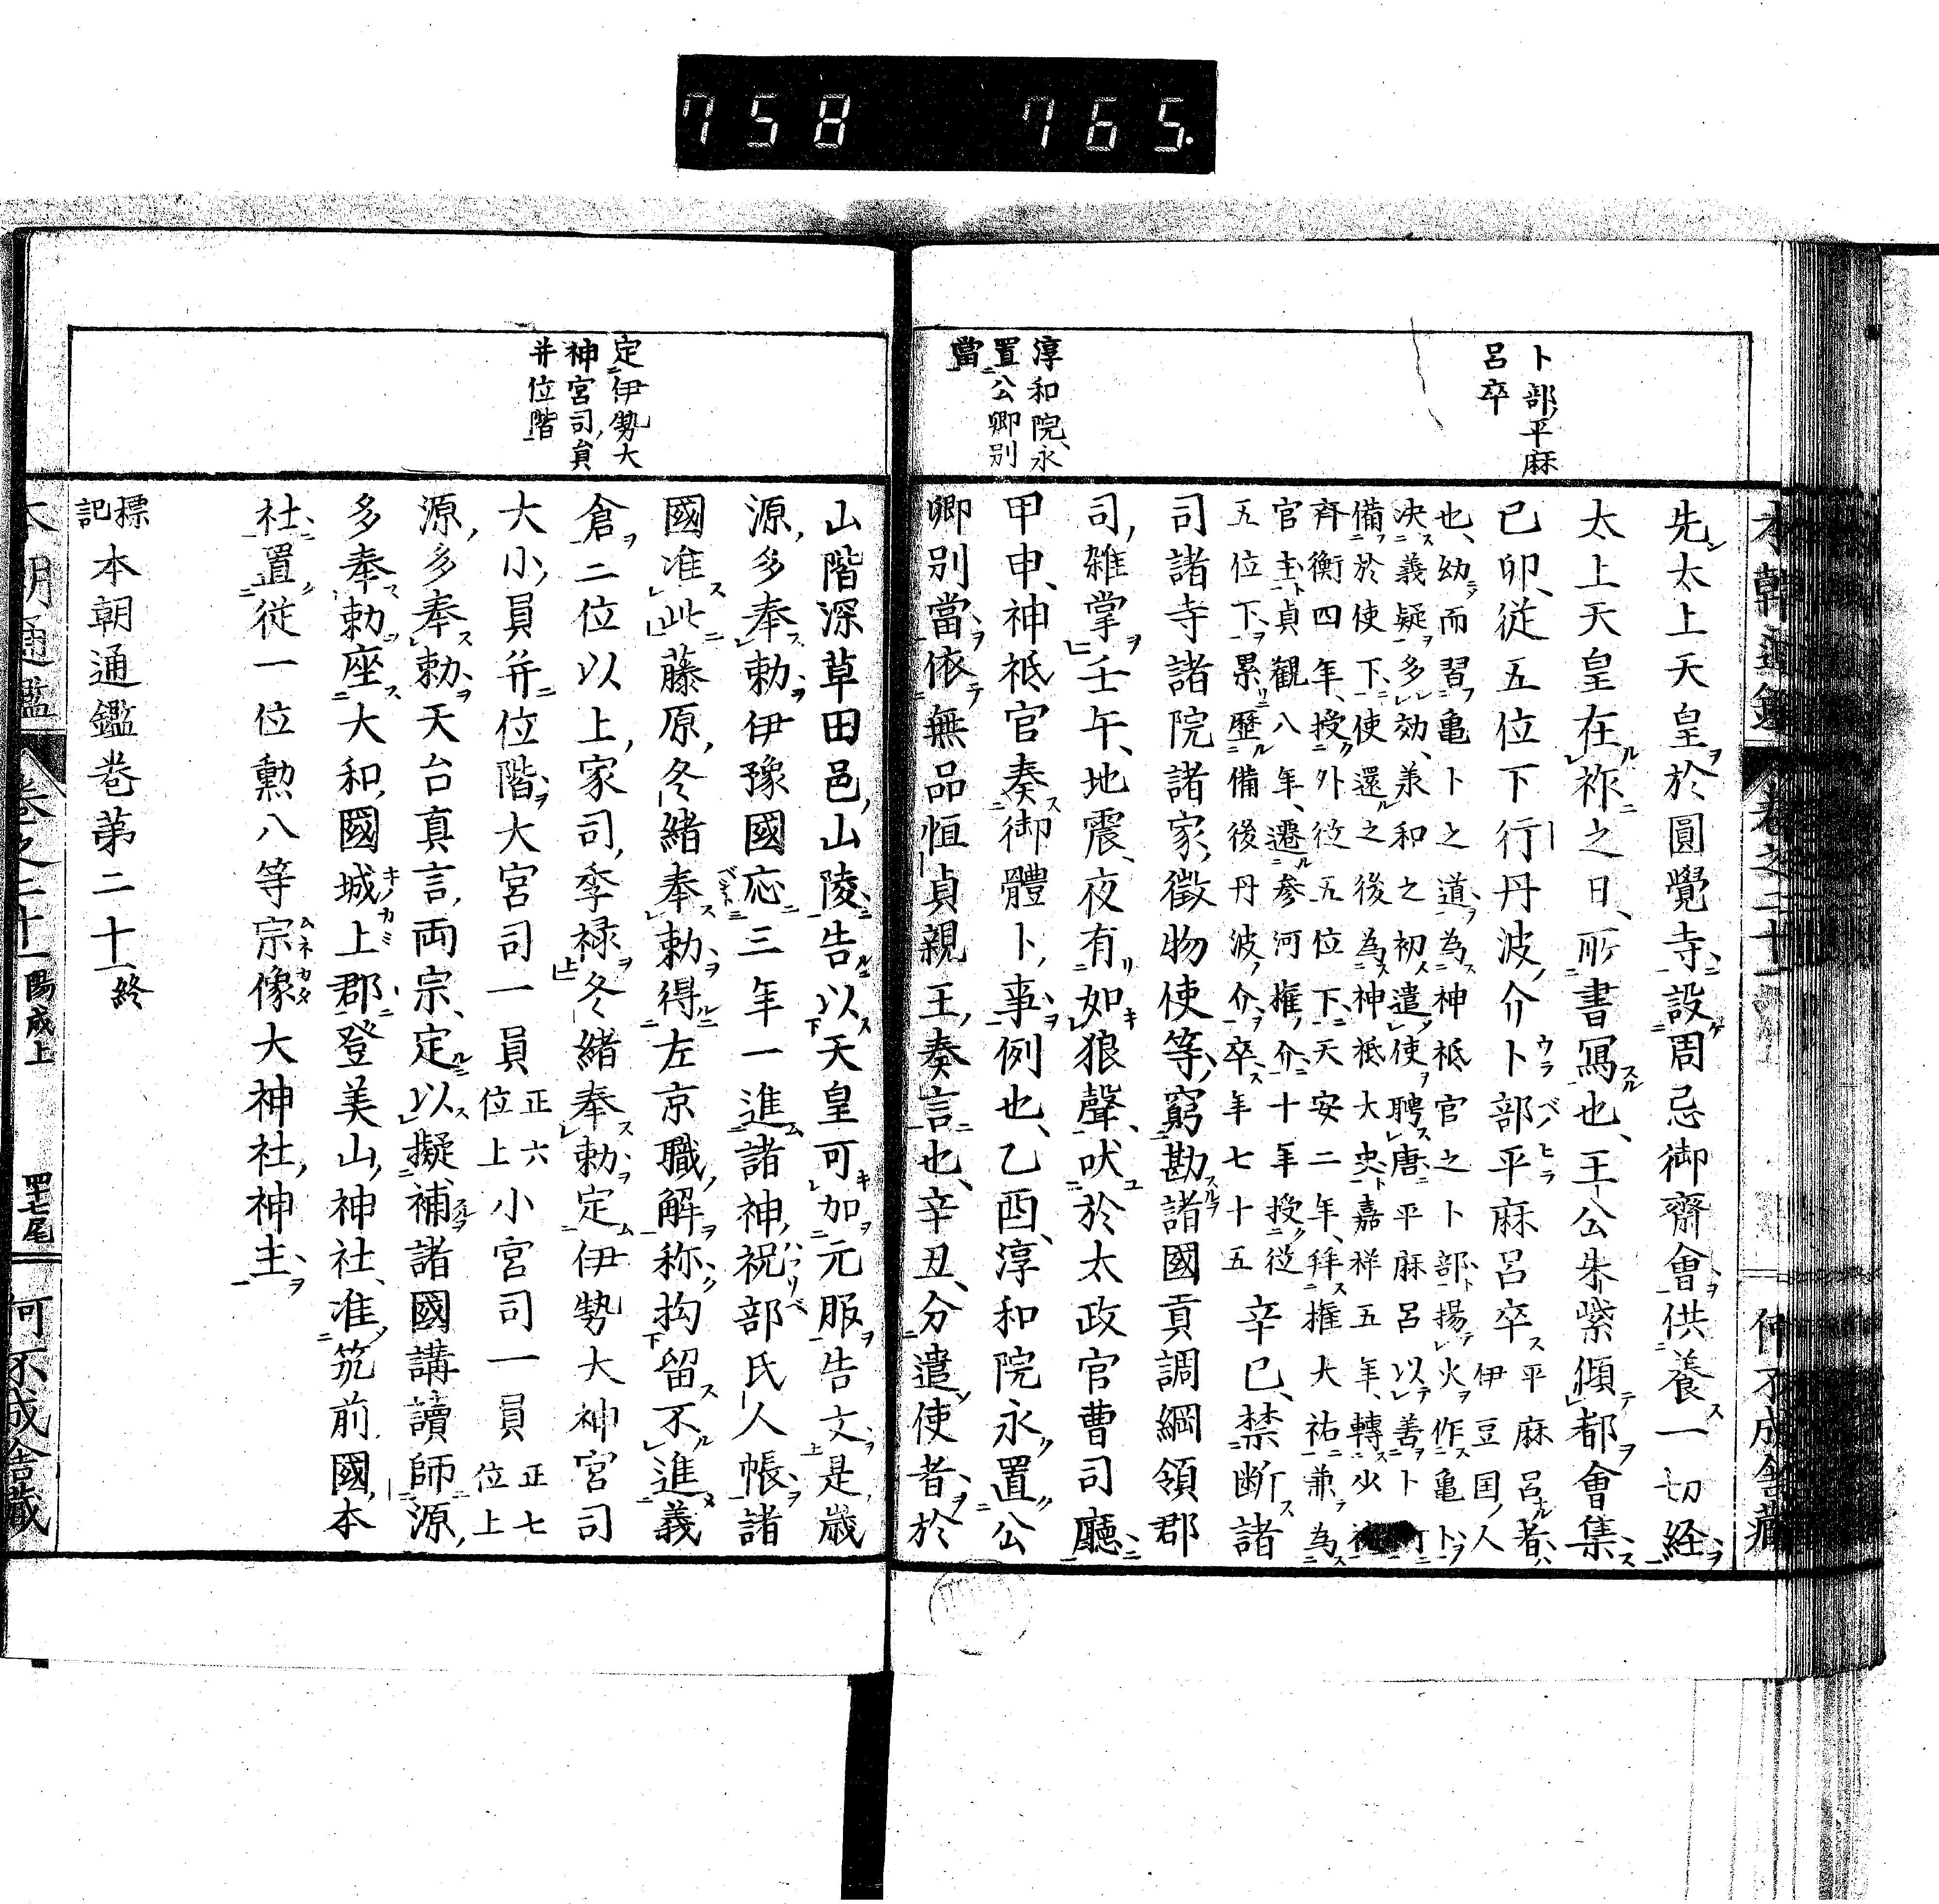 758 765.
卜部平麻
呂卒
淳和院永
置公卿別
當
先太上天皇於圓覺寺設周忌御齋會供養一切経
太上天皇在祚之日所書寫也王公朱紫傾都會集
已卯從五位下行丹波介卜部平麻呂卒
平麻呂者
伊豆国人
也幼而習亀卜之道為神祇官之卜部揚火作亀卜
决義疑多効兼和之初遣使聘唐平麻呂以善卜
備於使下使還之後為神祇大史嘉祥五年轉少
齊衡四年授外從五位下天安二年拜權大祐兼為
官主貞觀八年遷參河權介十年授從
五位下累歷備後丹波介卒年七十五
辛巳禁断諸
司諸寺諸院諸家徵物使等窮勘諸國貢調綱領郡
司雑掌壬午地震夜有如狼聲吠於太政官曹司廳
甲申神祇官奏御體卜事例也乙酉淳和院永置公
卿別當依無品恒貞親王奏言也辛丑分遣使者於
定伊勢大
神宮司員
并位階
山階深草田邑山陵告以天皇可加元服告文是歳
源多奉勅伊豫國応三年一進諸神祝部氏人帳諸
國准此藤原冬緒奉勅得左京職解称拘留不進義
倉二位以上家司季禄冬緒奉勅定伊勢大神宮司
大小員并位階大宮司一員
正六
位上
小宮司一員
正七
位上
源多奉勅天台真言両宗定以擬補諸國講讀師源
多奉勅座大和國城上郡登美山神社准筑前國本
社置従一位勲八等宗像大神社神主
標
記
本朝通鑑巻第二十一終
本朝通鑑 巻之二十一 陽成上 四十七尾 何不成舎蔵